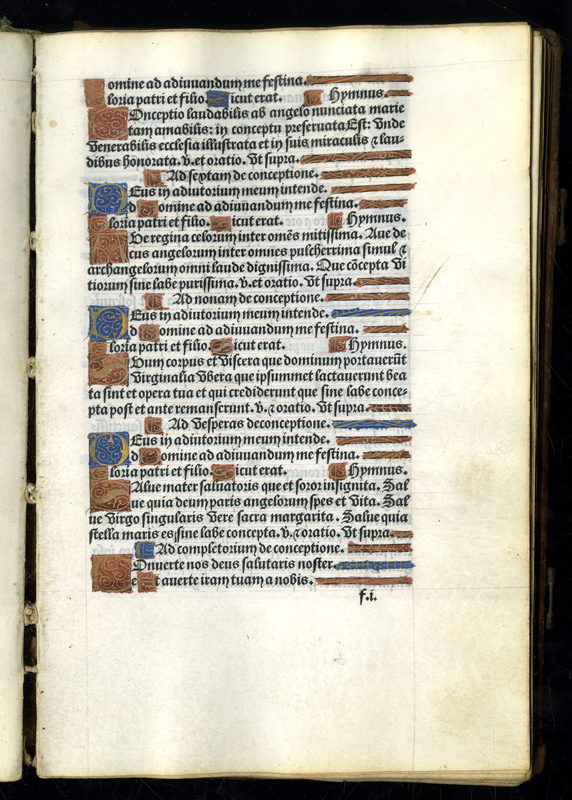 Domine ad adiuuandum me festina.
Gloria patri et filio. Sicut erat. Hymnus.
Conceptio laudabilis ab angelo nunciata marie
tam amabilis: in conceptu preseruata Est: Vnde
Venerabilis ecclesia illustrata et in suis miraculis ⁊ lau-
dibus honorata. v. et oratio. Vt supra.
Ad sextam de conceptione.
DEus in adiutorium meum intende.
Domine ad adiuuandum me festina.
Gloria patri et filio. Sicut erat. Hymnus.
AVe regina celorum inter om̄es mitissima. Aue de
cus angelorum inter omnes pulcherrima simul ⁊
archangelorum omni laude dignissima. Que cōcepta Vi
tiorum sine labe purissima. v. et oratio. Vt supra.
Ad nonam de conceptione.
DEus in adiutorium meum intende.
Domine ad adiuuandum me festina.
Gloria patri et filio. Sicut erat. Hymnus.
Dum corpus et Viscera que dominum portauerūt
Virginalia Vbera que ipsummet lactauerunt bea
ta sint et opera tua et qui crediderunt que sine labe conce-
pta post et ante remanserunt. v. ⁊ oratio. Vt supra.
Ad Vesperas de conceptione.
DEus in adiutorium meum intende.
Domine ad adiuuandum me festina.
Gloria patri et filio. Sicut erat. Hymnus.
SAlue mater saluatoris que et soror insignita. Sal
ue quia deum paris angelorum spes et Vita. Sal
ue Virgo singularis Vere sacra margarita. Salue quia
stella maris es sine labe concepta. v. ⁊ oratio. Vt supra.
Ad completorium de conceptione.
COnuerte nos deus salutaris noster.
Et auerte iram tuam a nobis.
f.i.